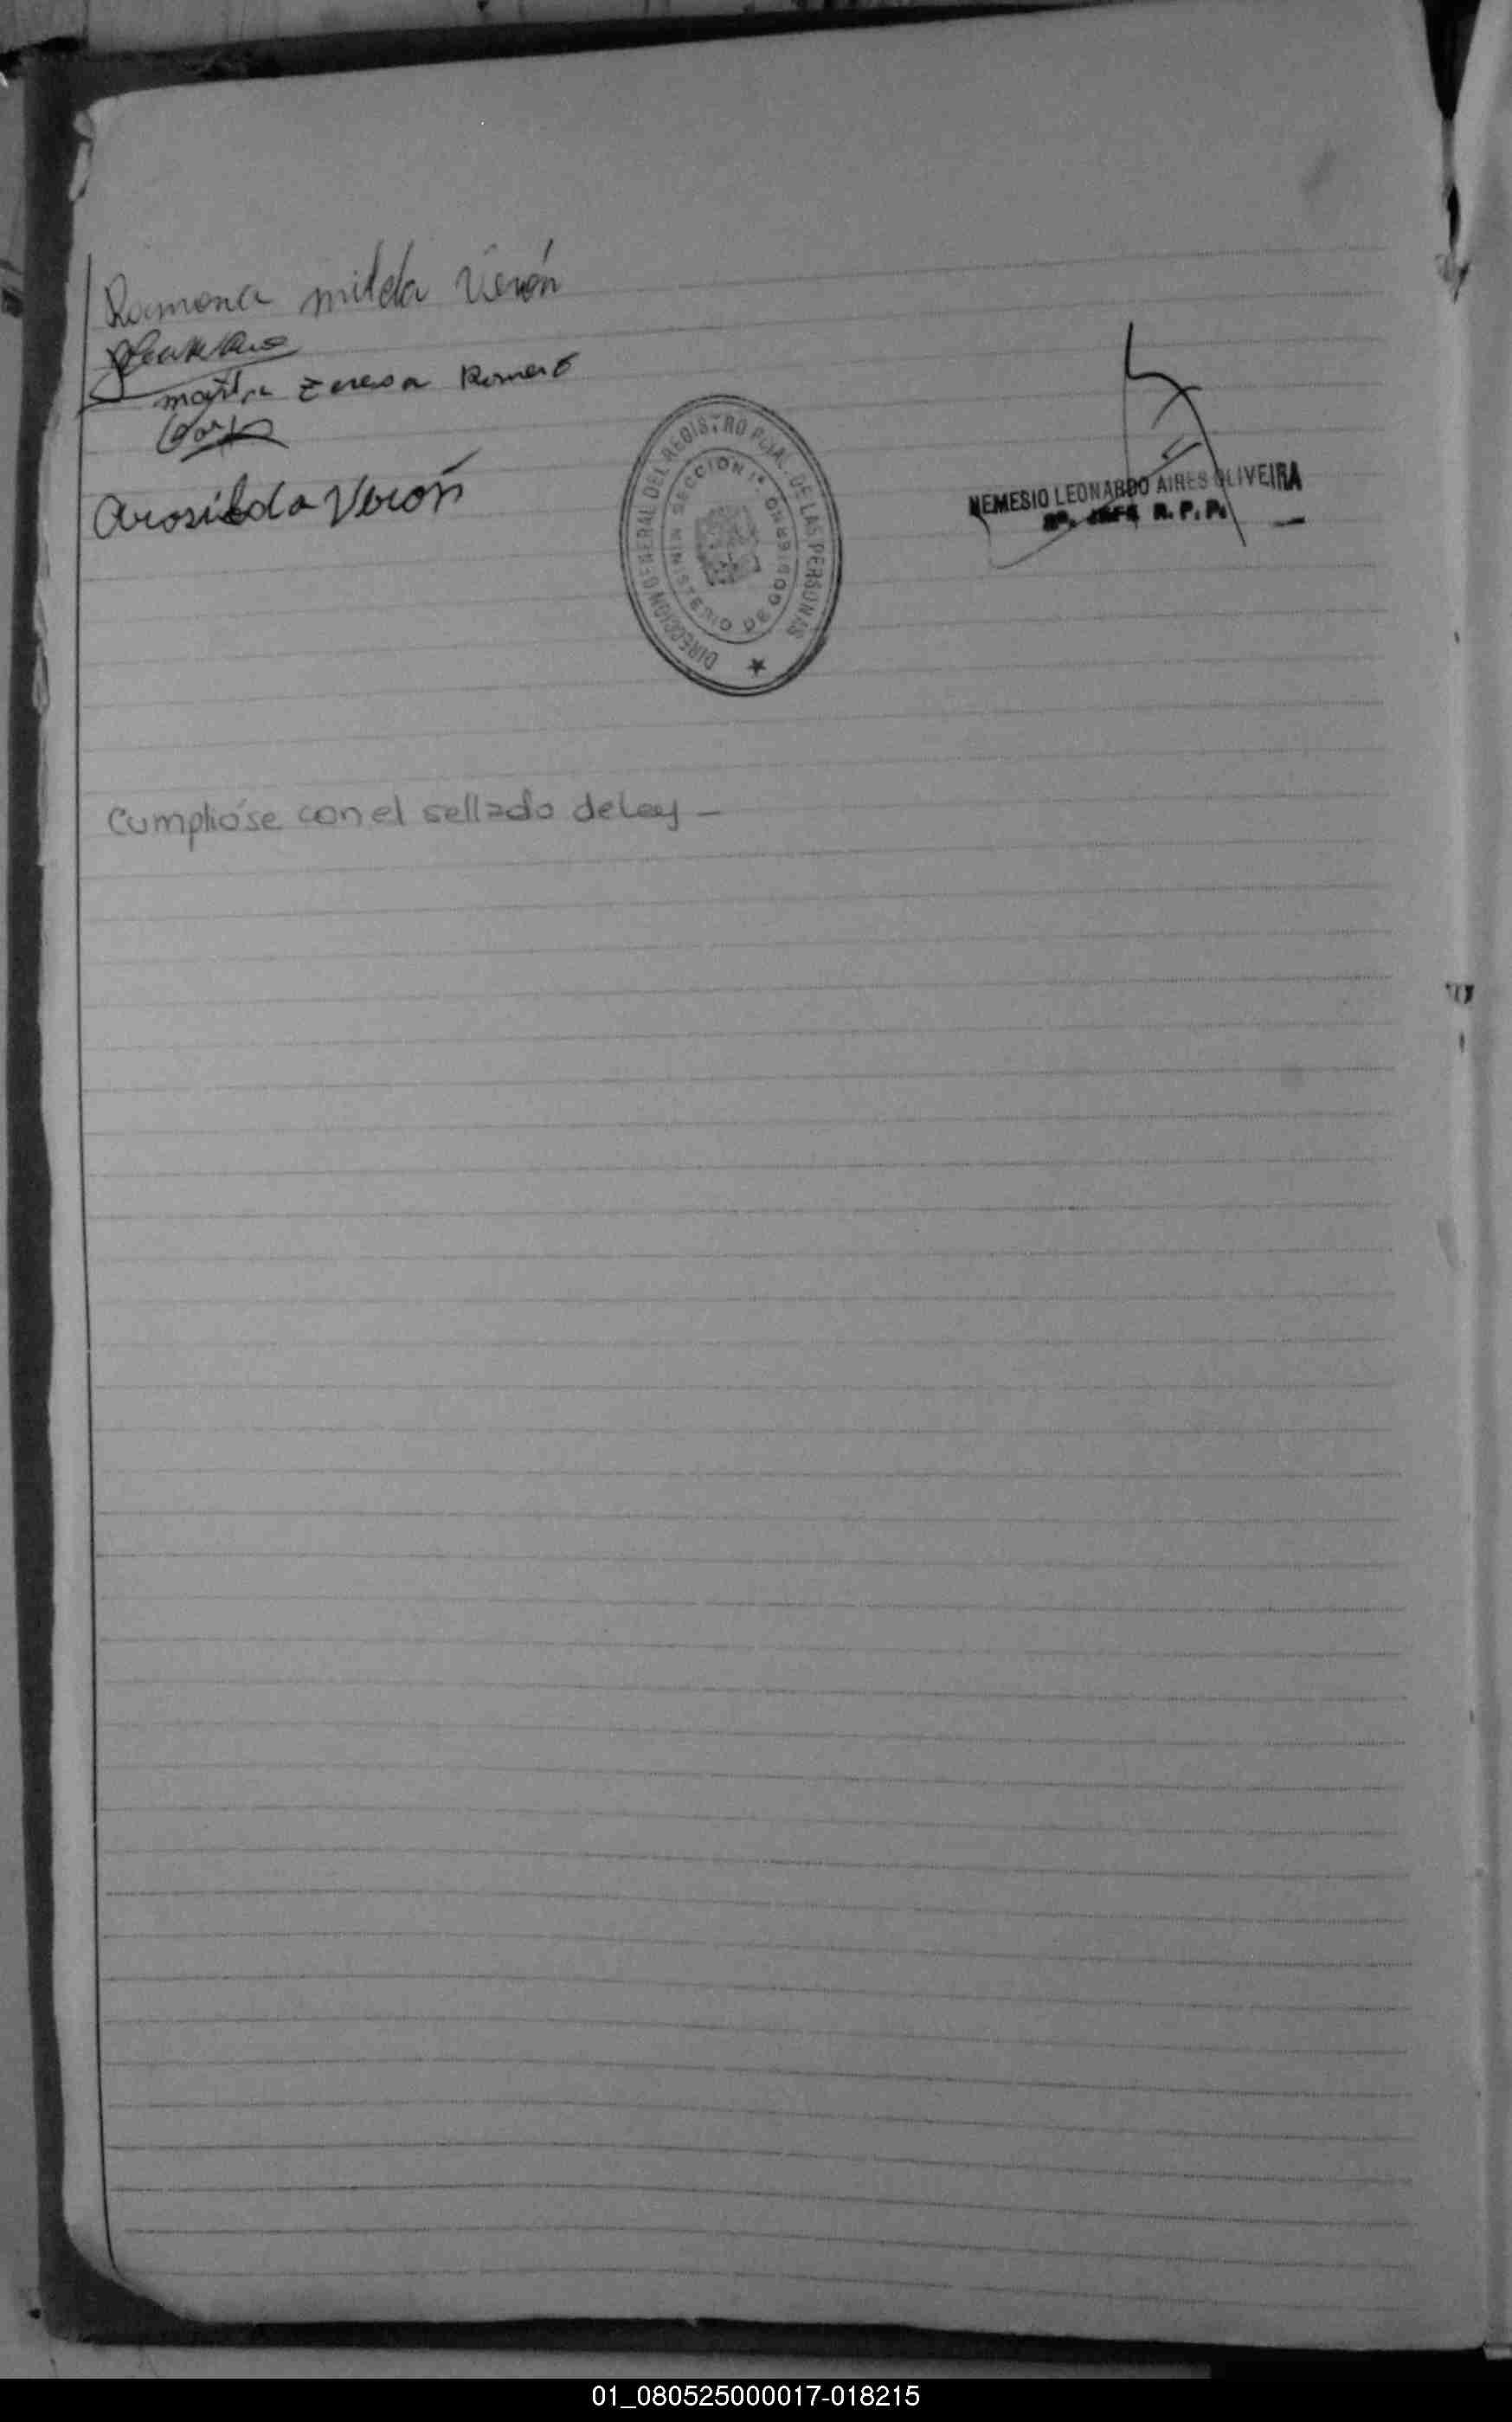 Ramona milda Verón
martha teresa Romero
arosilda Verón
DIRECCION GENERAL DEL REGISTRO PCIAL. DE LAS PERSONAS
MINISTERIO DE GOBIERNO
SECCION 1ª.
NEMESIO LEONARDO AIRES OLIVEIRA
JEFE R. P. P.
Cumplióse con el sellado de Ley -
01_080525000017-018215